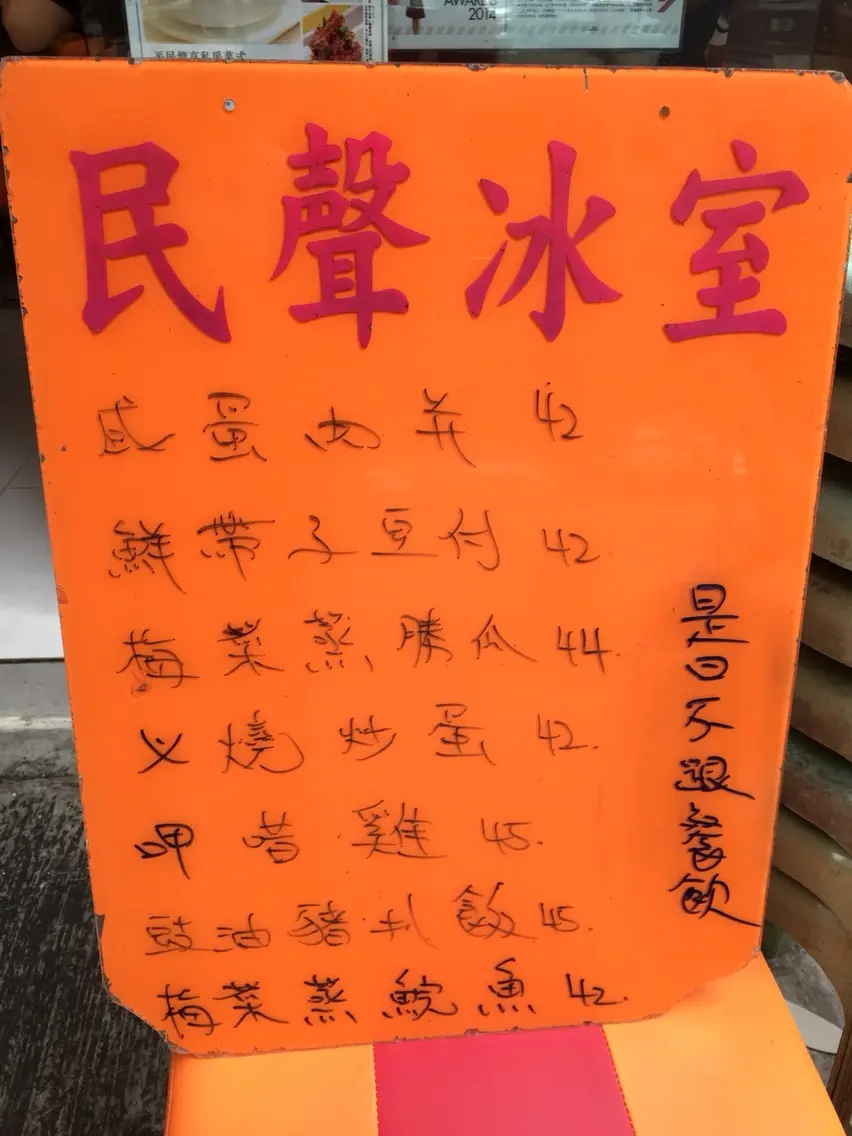 AWARDS
2014
民聲冰室
咸蛋肉井 42
鮮帶子豆付 42
梅菜蒸勝瓜 44.
义燒炒蛋 42.
呷哂雞 45.
豉油豬扒飯 45.
梅菜蒸鯇魚 42.
是日不跟餐飲